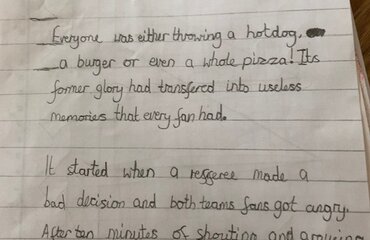 Everyone was either throwing a hotdog,
a burger or even a whole pizza! Its
former glory had transfered into useless
memories that every fan had.
It started when a refferee made a
bad decision and both teams fans got angry.
After ten minutes of shouting and arguing